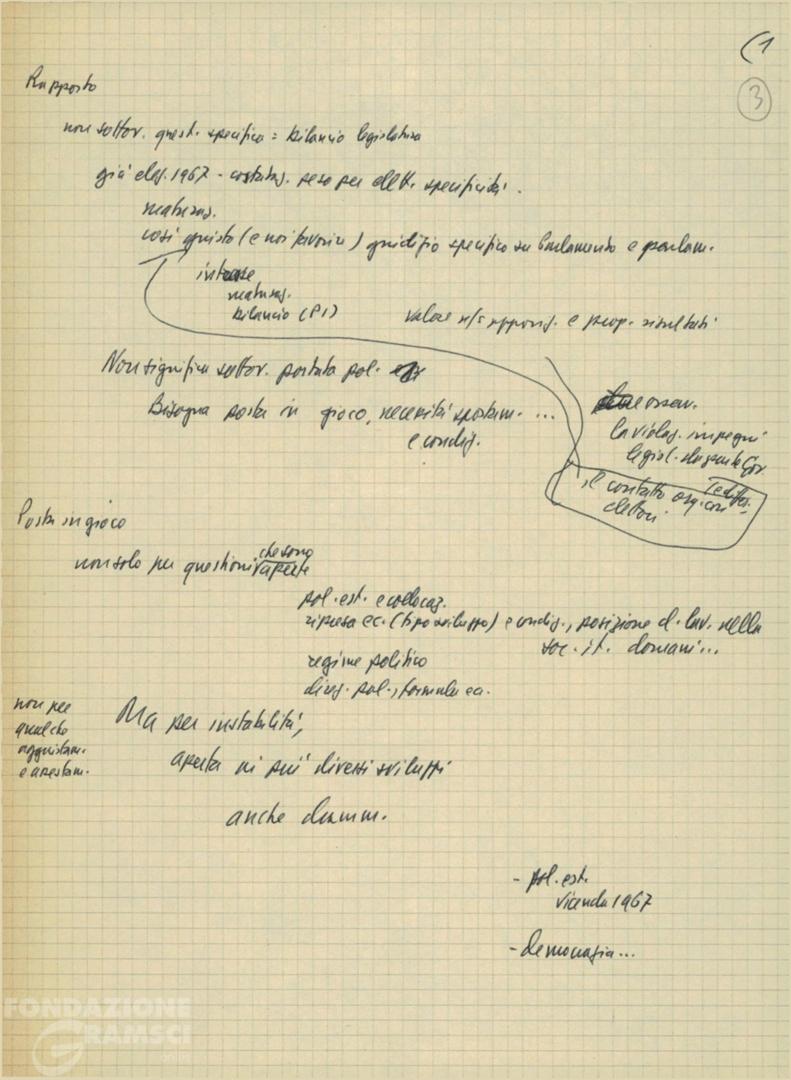 (1
3
Rapporto
non sottov. quest. specifica = bilancio legislatura
già elez. 1967 - constataz. peso per elett. specificità.
maturaz.
così giusto (e noi favorire) giudizio specifico su Parlamento e parlam.
maturaz.
bilancio (PI)
valore ns apporg. e prop. risultati
Non significa sottov. portata pol.
Bisogna posta in gioco, necessità spostam. ...
e condiz.
osserv.
la violaz. impegni
legisl. da parte
il contatto org. con
elettori.
Posta in gioco
non solo per questioni che sono
aperte
pol. est. e collocaz.
ripresa ec. (tipo sviluppo) e condiz., posizione d. lav. nella
soc. it. domani...
regime politico
direz. pol., formula ecc.
non per
qualche
aggiustam.
e assestam.
Ma per instabilità,
aperta ai più diversi sviluppi
anche dramm.
- pol. est.
vicenda 1967
- democrazia...
FONDAZIONE
GRAMSCI